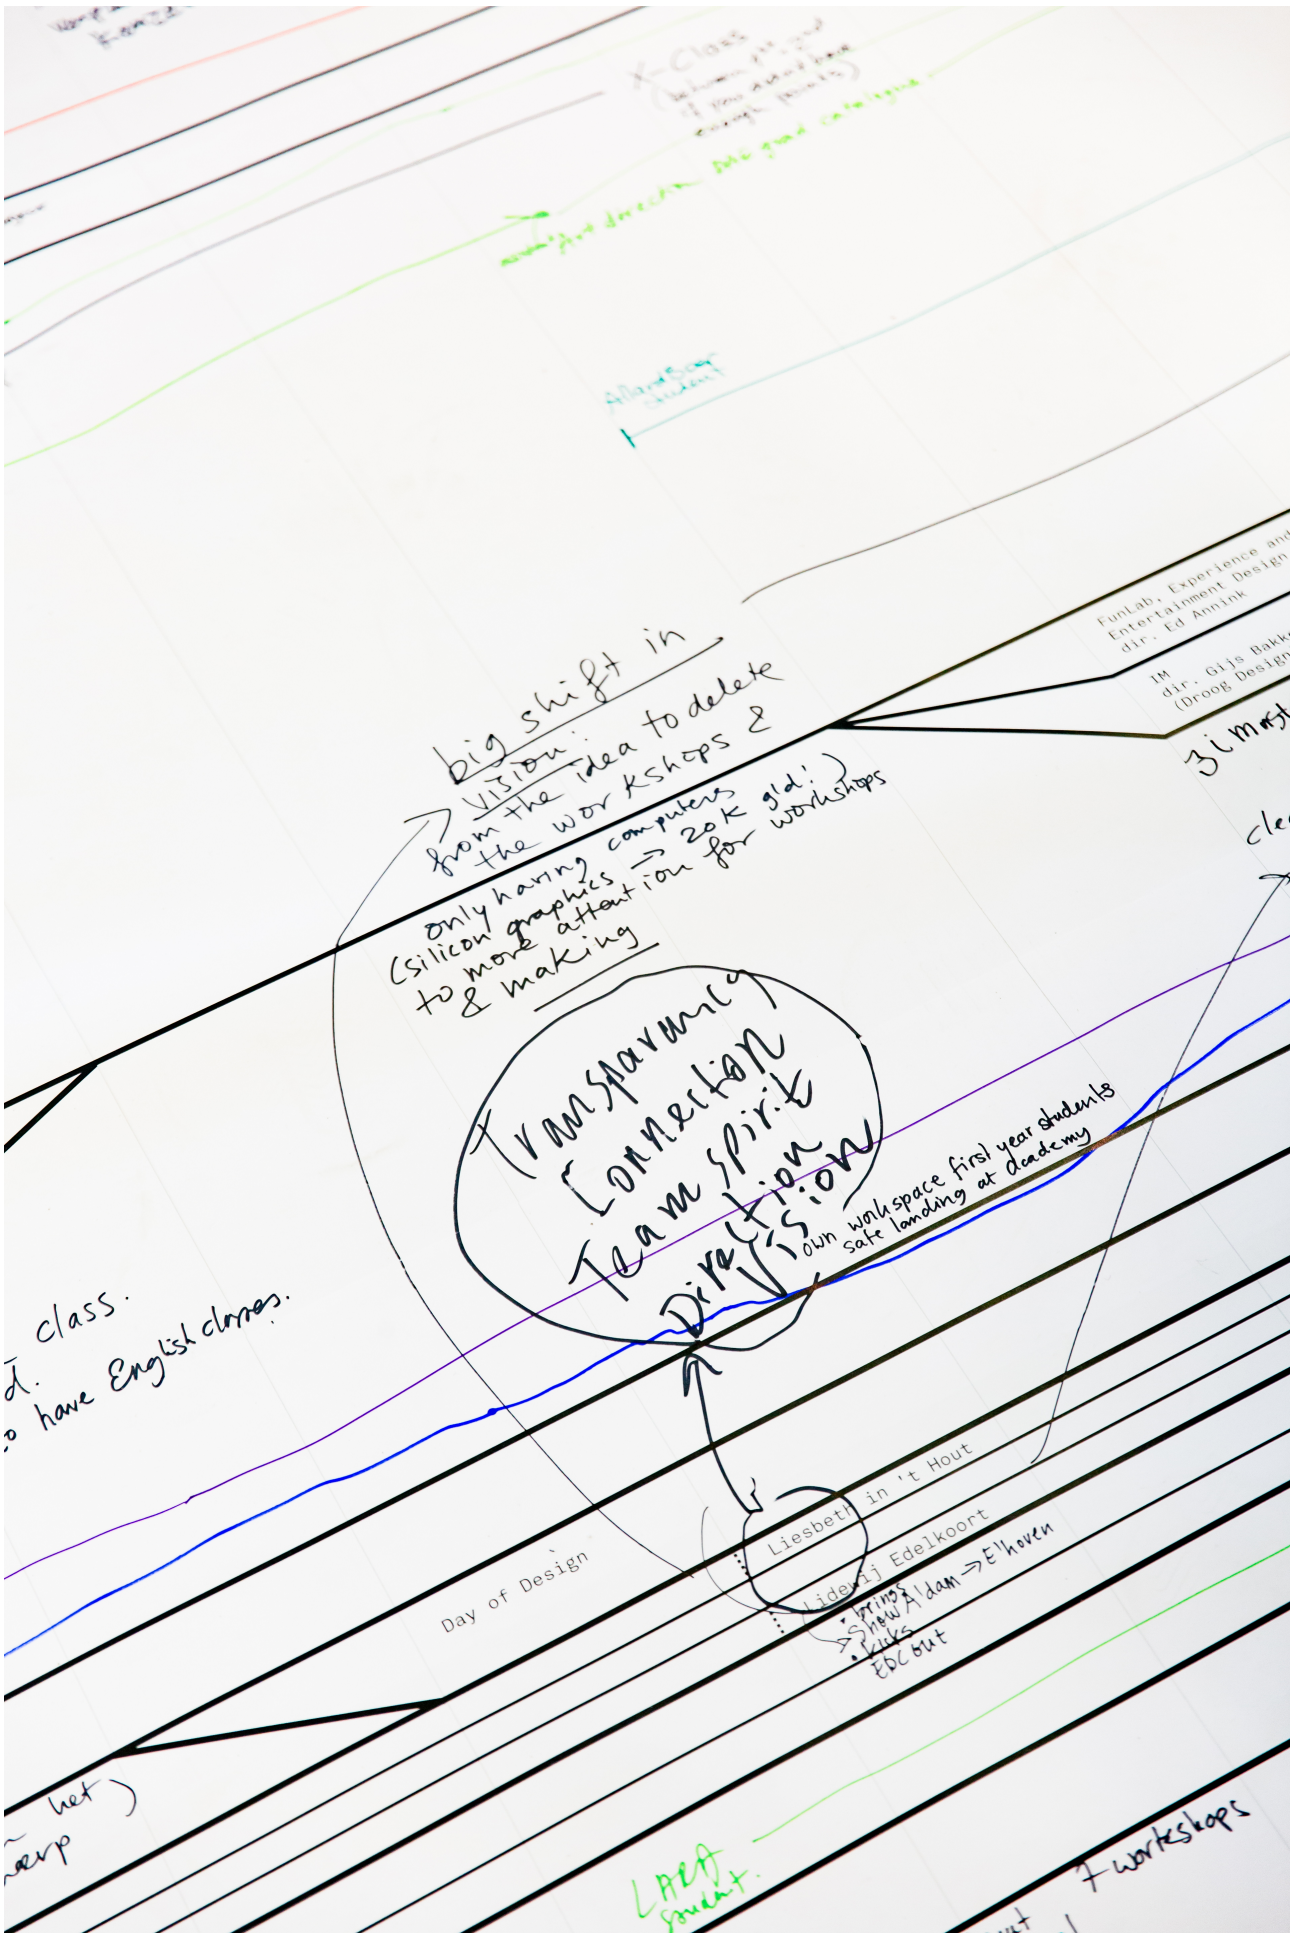 X-Class
(between 1st and
if you didn't have
enough points)
Art direction
student
FunLab, Experience and
Entertainment Design
dir. Ed Annink
IM
dir. Gijs Bakke
(Droog Design
big shift in
vision:
from the idea to delete
the workshops &
only having computers
(silicon graphics → 20K gld!)
to more attention for workshops
& making
3 i
clea
Transparancy
Connection
Team spirit
Direction
Vision
own workspace first year students
safe landing at academy
class.
d.
to have English classes.
Day of Design
Liesbeth in 't Hout
Lidewij Edelkoort
• brings
show A'dam → E'hoven
• kicks
EDC out
het )
werp
LARA
student.
7 worteskops